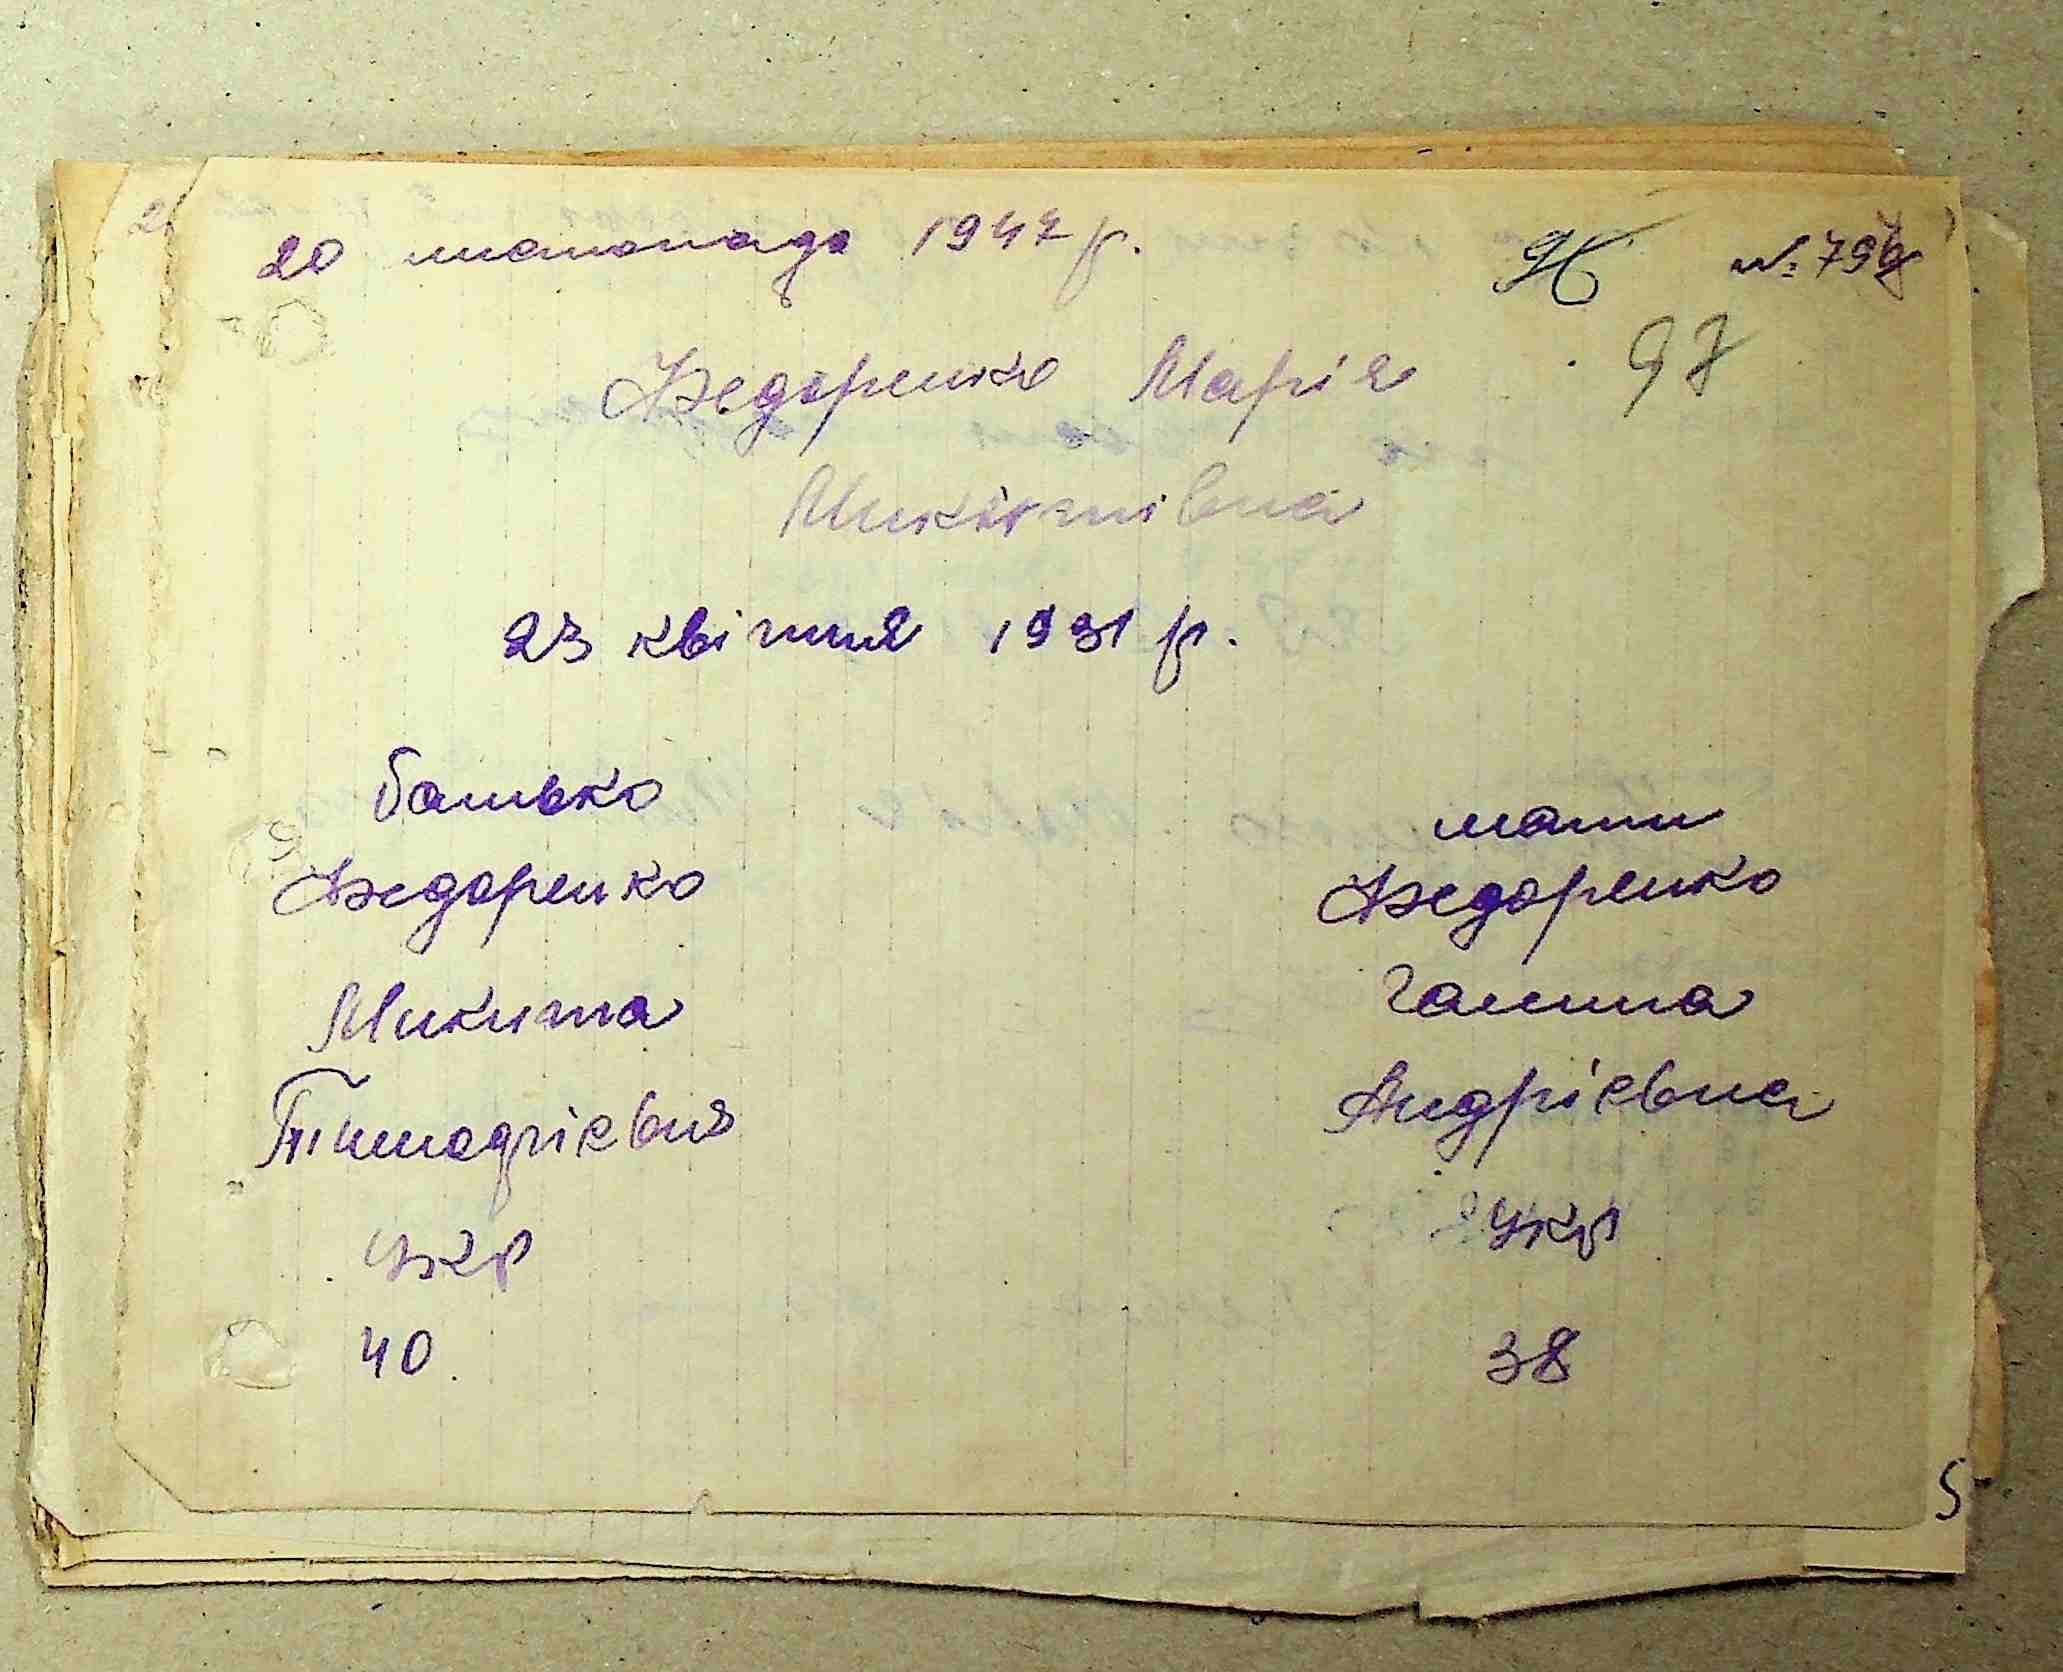 20 листопада 1947 р. 96 № 796
Федоренко Марія 97
Микитівна
23 квітня 1931 р.
батько мати
Федоренко Федоренко
Микита Галина
Андрієвна
укр укр
40 38
5